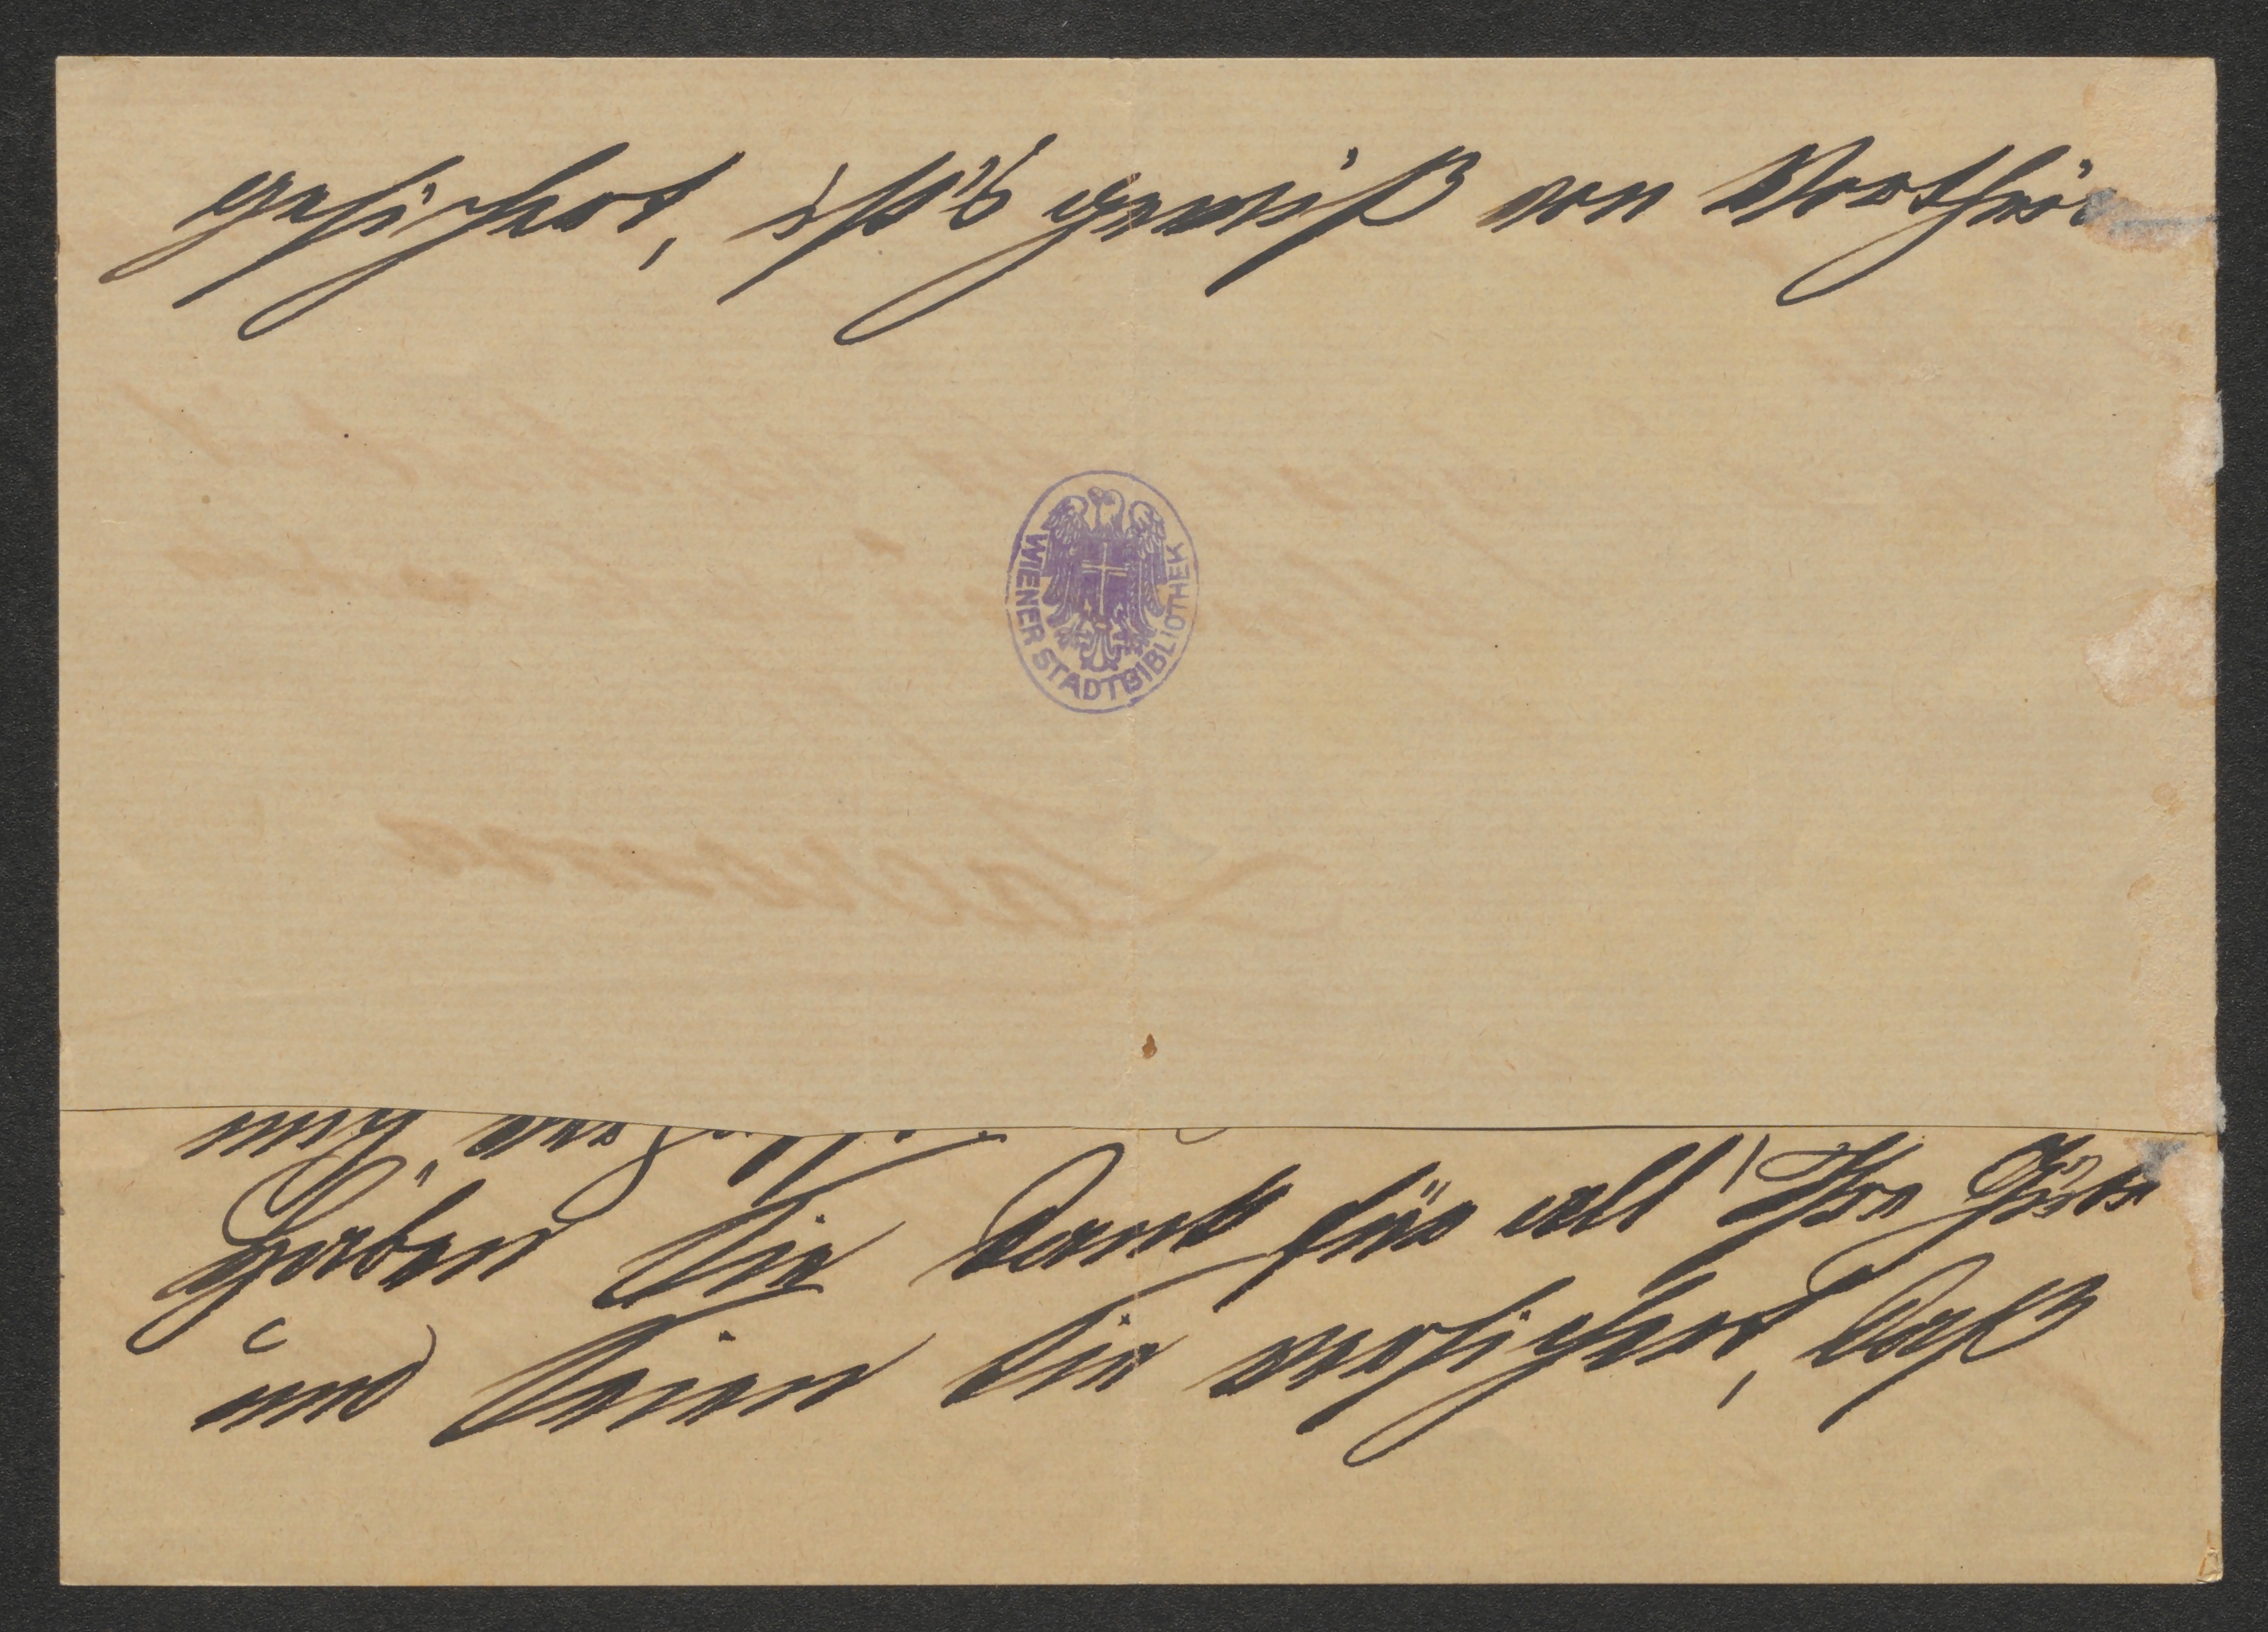 gesichert, ist's gewiß von Vortheil
WIENER STADTBIBLIOTHEK
mich
Haben Sie Dank für all' Ihre Güte
und seien Sie versichert, daß